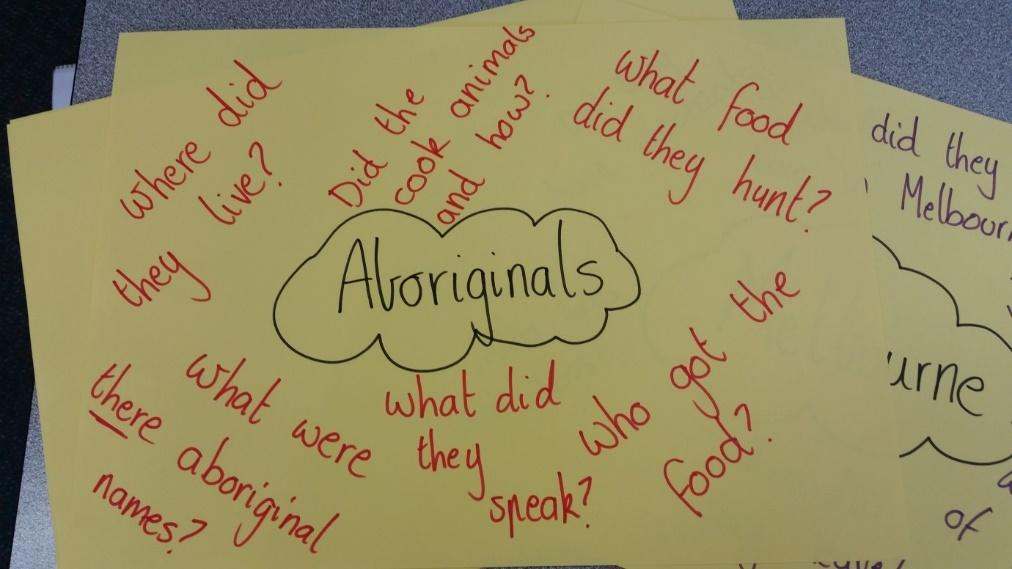 where did
they live?
Did the
cook animals
and how?
what food
did they hunt?
Aboriginals
what were
there aboriginal
names?
what did
they
speak?
who got the
food?
did they
Melbour
urne
of